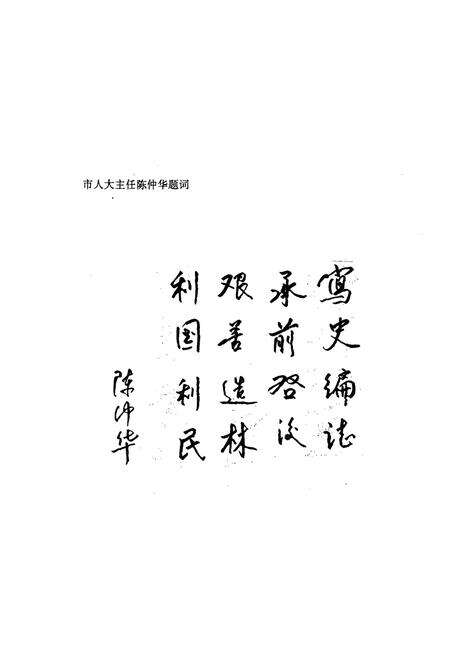 市人大主任陈仲华题词
寫史编誌
承前啓後
艰苦造林
利国利民
陈仲华